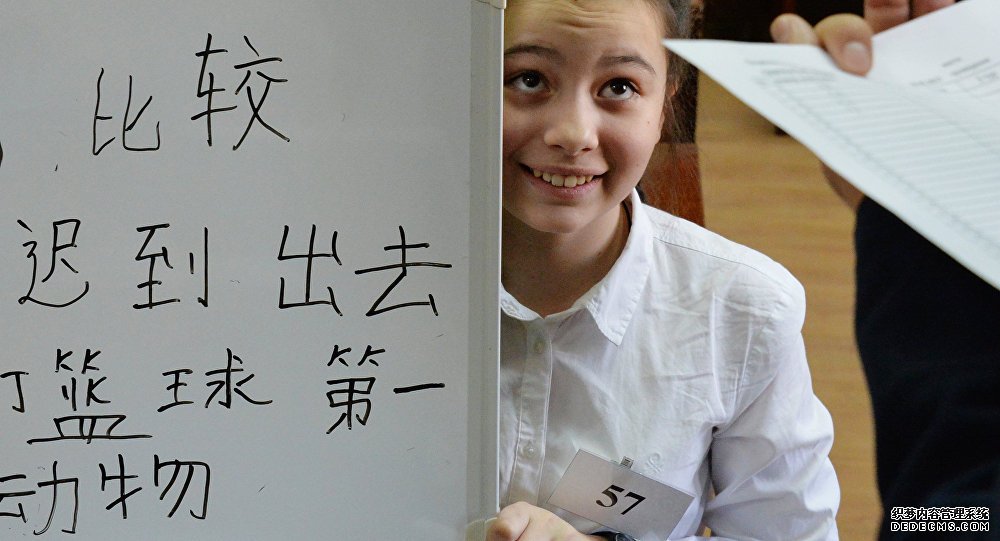 比较
迟到 出去
打篮球 第一
动物
57
织梦内容管理系统
DEDECMS.COM